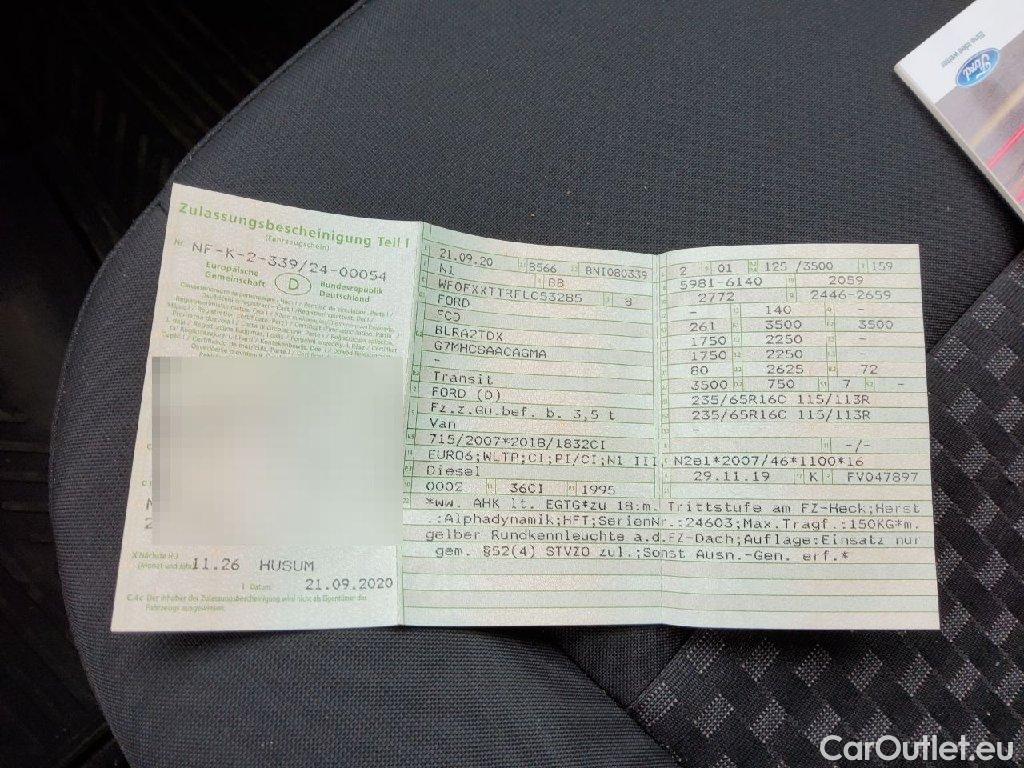 Zulassungsbescheinigung Teil I
(Fahrzeugschein)
Nr. NF-K-2-339/24-00054
Europäische Gemeinschaft D Bundesrepublik Deutschland
X Nächste HU
(Monat und Jahr) 11.26 HUSUM
I Datum: 21.09.2020
C.4c Der Inhaber der Zulassungsbescheinigung wird nicht als Eigentümer des
Fahrzeugs ausgewiesen.
21.09.20 8566 BNI080339
N1 BB
WF0FXXTTRFLC53285 8
FORD
FCD
BLRA2TDX
G7MHC6AACAGMA
-
Transit
FORD (D)
Fz.z.Gü.bef. b. 3,5 t
Van
715/2007*2018/1832CI
EURO6;WLTP;CI;PI/CI;N1 III
Diesel
0002 36CI 1995
2 01 125 /3500 159
5981-6140 2059
2772 2446-2659
- 140 -
261 3500 3500
1750 2250 -
1750 2250 -
80 2625 72
3500 750 7 -
235/65R16C 115/113R
235/65R16C 115/113R
-
- -/-
N2e1*2007/46*1100*16
29.11.19 K FV047897
*ww. AHK lt. EGTG*zu 18:m. Trittstufe am FZ-Heck;Herst
.:Alphadynamik;HFT;SerienNr.:24603;Max.Tragf.:150KG*m.
gelber Rundkennleuchte a.d.FZ-Dach;Auflage:Einsatz nur
gem. §52(4) STVZO zul.;Sonst Ausn.-Gen. erf.*
Ford
Eine Idee weiter
CarOutlet.eu